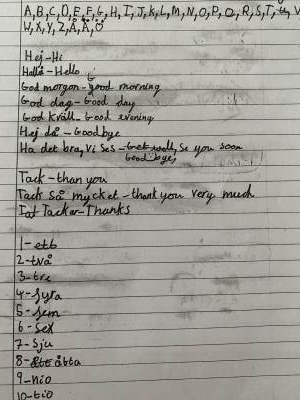 A,B,C,D,E,F,G,H,I,J,K,L,M,N,O,P,Q,R,S,T,U,V
W,X,Y,Z,Å,Ä,Ö
Hej-Hi
Hallå-Hello
God morgon-good morning
God dag-Good day
God Kväll-Good evening
Hej då-Goodbye
Ha det bra, Vi Ses - Se you soon
Good bye,
Tack-than you
Tack Så mycket-thank you very much
Tackar-Thanks
1-ett
2-två
3-tre
4-fyra
5-fem
6-Sex
7-Sju
8-åtta
9-nio
10-tio